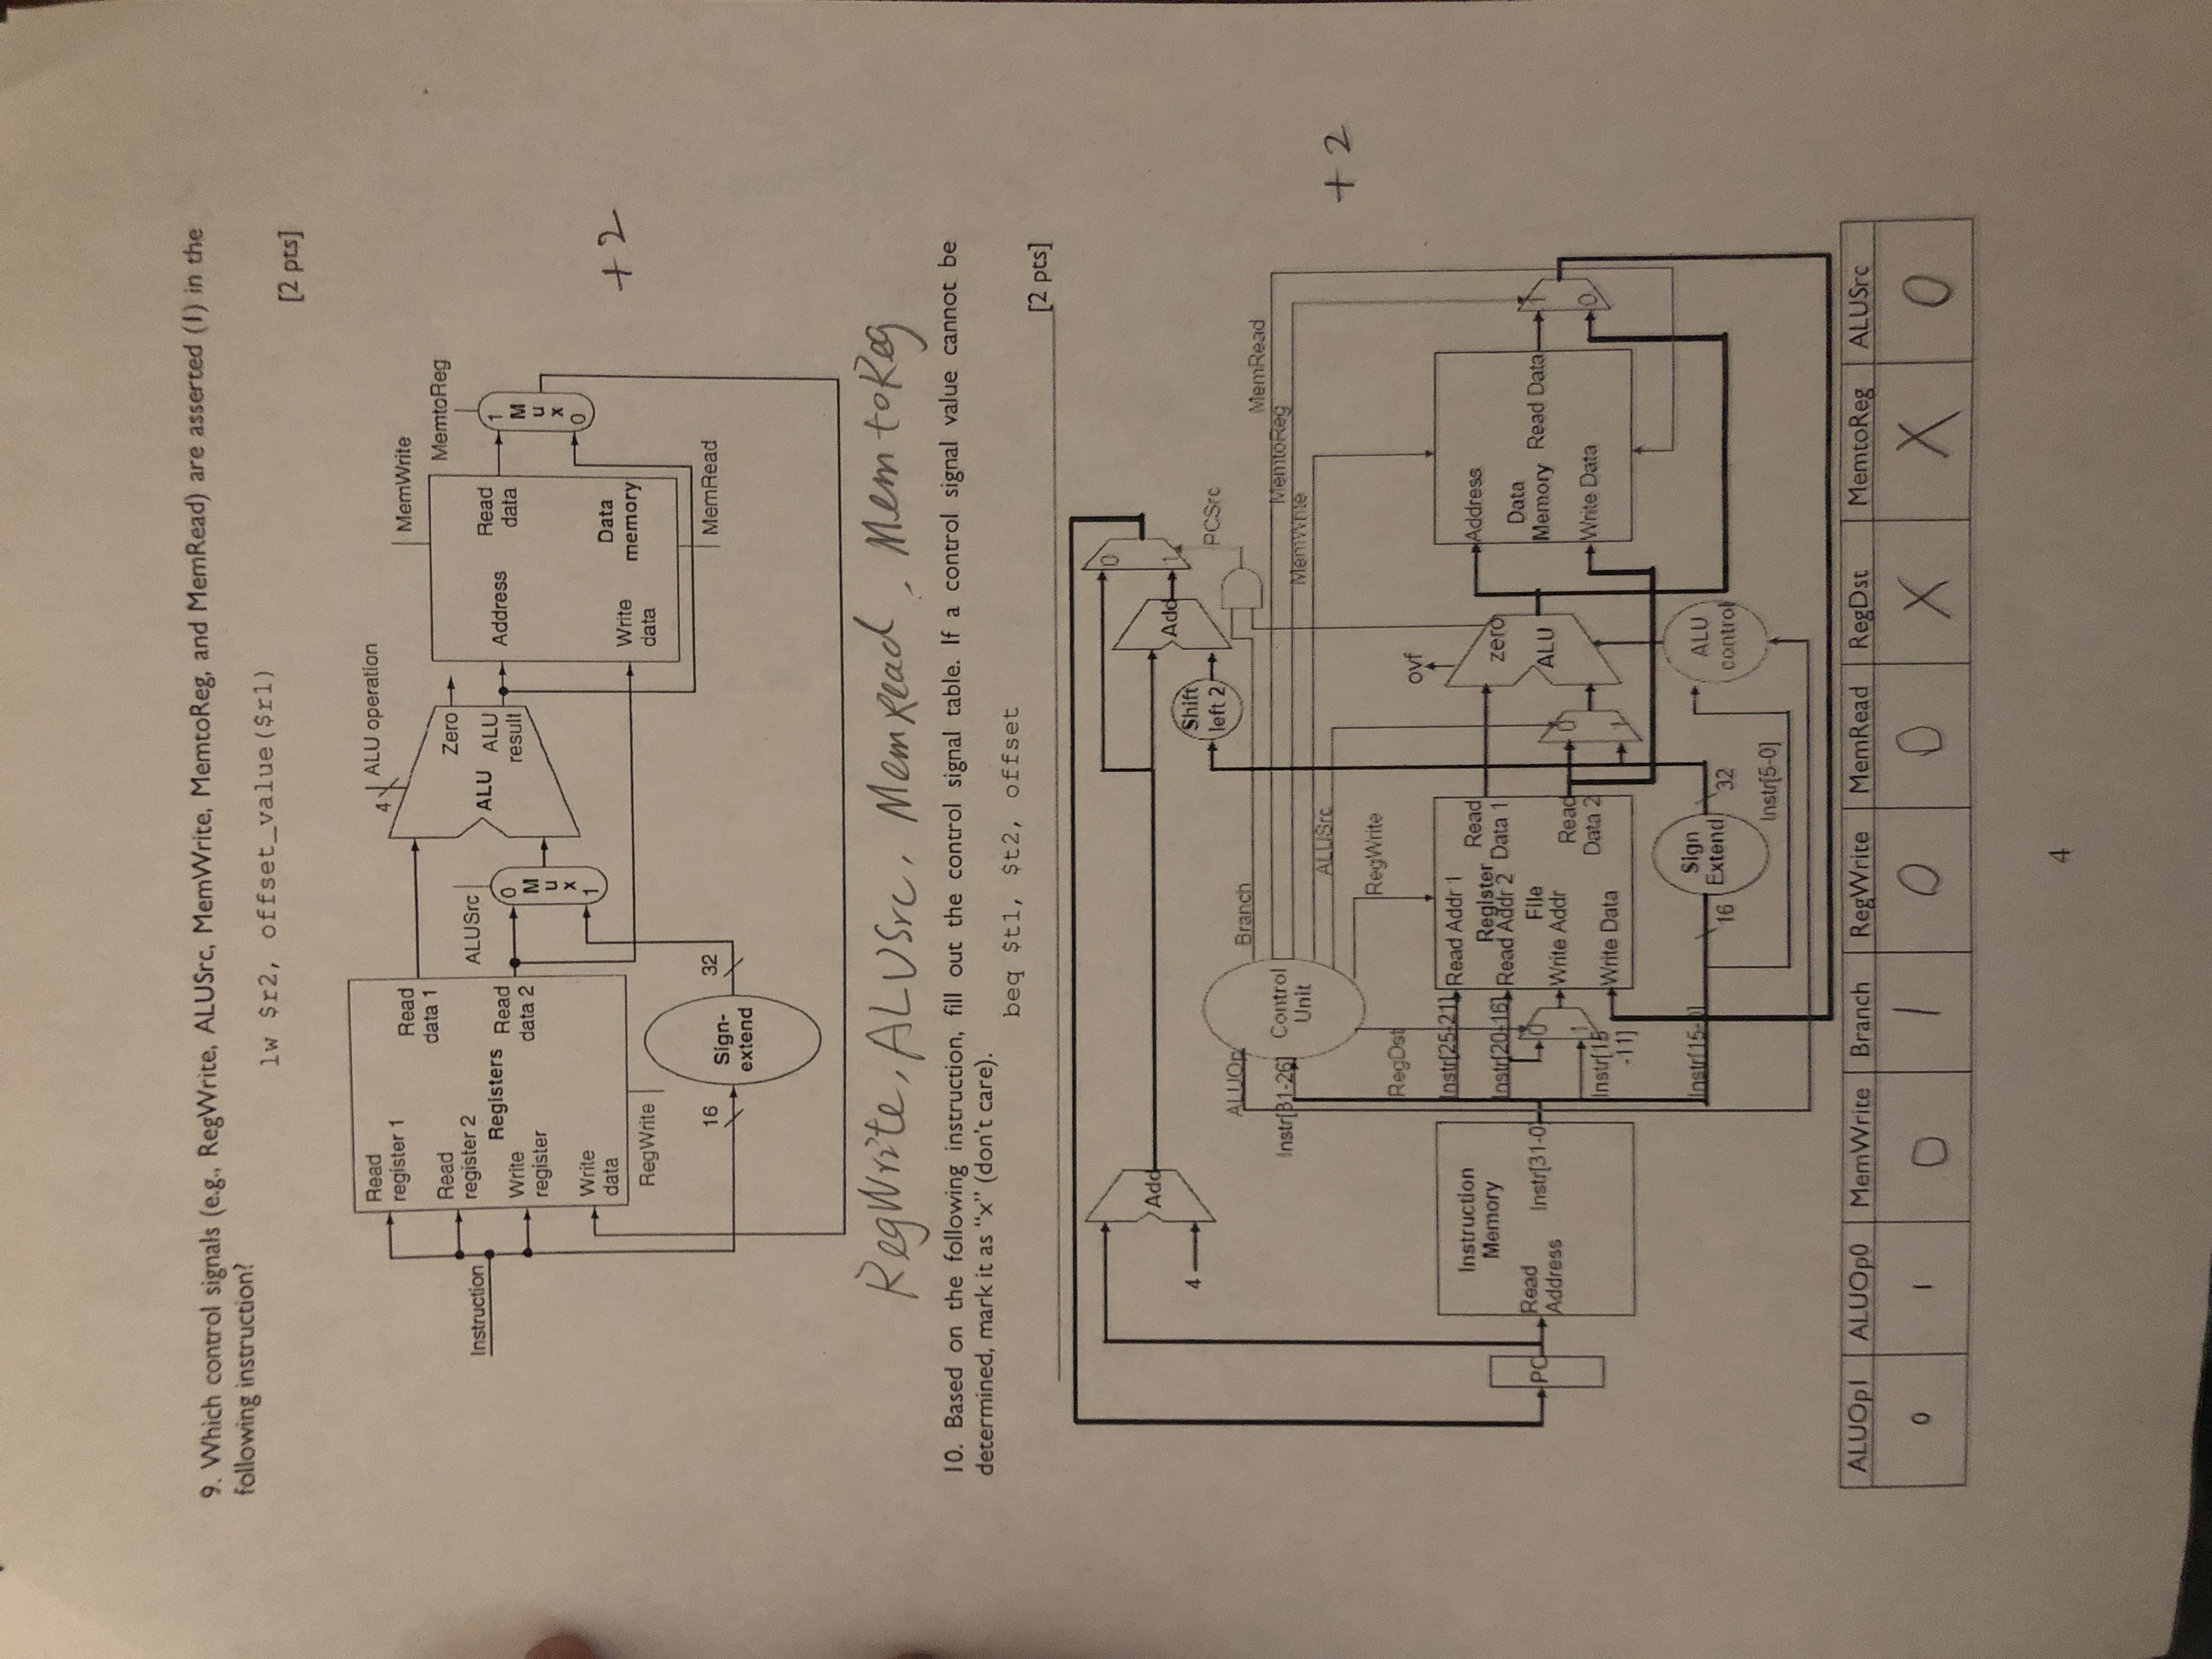 9. Which control signals (e.g., RegWrite, ALUSrc, MemWrite, MemtoReg, and MemRead) are asserted (1) in the
following instruction?
lw $r2, offset_value($r1)
[2 pts]
Read
register 1
Read
data 1
Read
register 2
Registers
Read
data 2
Write
register
Write
data
Instruction
RegWrite
16
Sign-
extend
32
ALUSrc
0
M
u
x
1
4
ALU operation
Zero
ALU
ALU
result
MemWrite
Address
Read
data
Write
data
Data
memory
MemRead
MemtoReg
1
M
u
x
0
+2
RegWrite, ALUSrc, MemRead, MemtoReg
10. Based on the following instruction, fill out the control signal table. If a control signal value cannot be
determined, mark it as “x” (don't care).
beq $t1, $t2, offset
[2 pts]
Add
4
Shift
left 2
Add
0
1
PCSrc
ALUOp
Branch
MemRead
Instr[31-26]
Control
Unit
MemtoReg
MemWrite
ALUSrc
RegWrite
RegDst
+2
ovf
PC
Instruction
Memory
Read
Address
Instr[31-0]
Instr[25-21]
Instr[20-16]
0
1
Instr[15
-11]
Read Addr 1
Register
Read
Data 1
Read Addr 2
File
Write Addr
Read
Data 2
Write Data
0
1
zero
ALU
Address
Data
Memory
Read Data
Write Data
1
0
Instr[15-0]
16
Sign
Extend
32
ALU
control
Instr[5-0]
ALUOp1 ALUOp0 MemWrite Branch RegWrite MemRead RegDst MemtoReg ALUSrc
0 1 0 1 0 0 X X 0
4